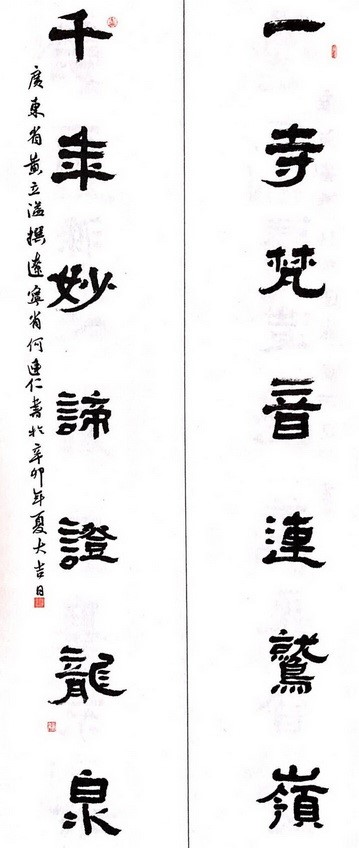 一寺梵音連鷲嶺
千年妙諦證龍泉
廣東省黄立溢撰遼寧省何連仁書於辛卯年夏大吉日